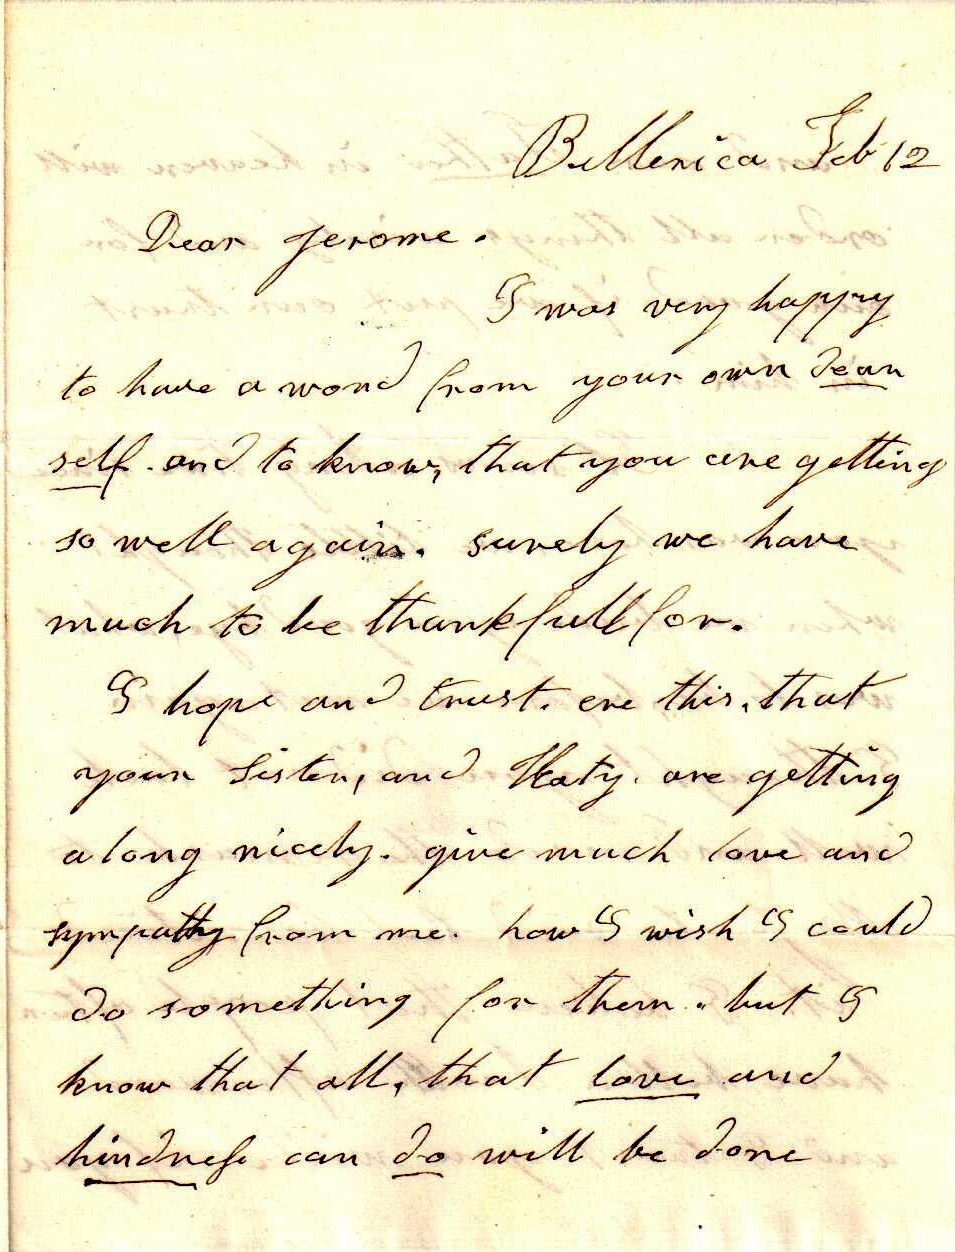 Billerica Feb 12
Dear Jerome.
I was very happy
to have a word from your own dear
self. and to know, that you are getting
so well again. surely we have
much to be thankfull for.
I hope and trust. ere this, that
your Sister, and Katy. are getting
along nicely. give much love and
sympathy from me. how I wish I could
do something for them. but I
know that all, that love and
kindness can do will be done